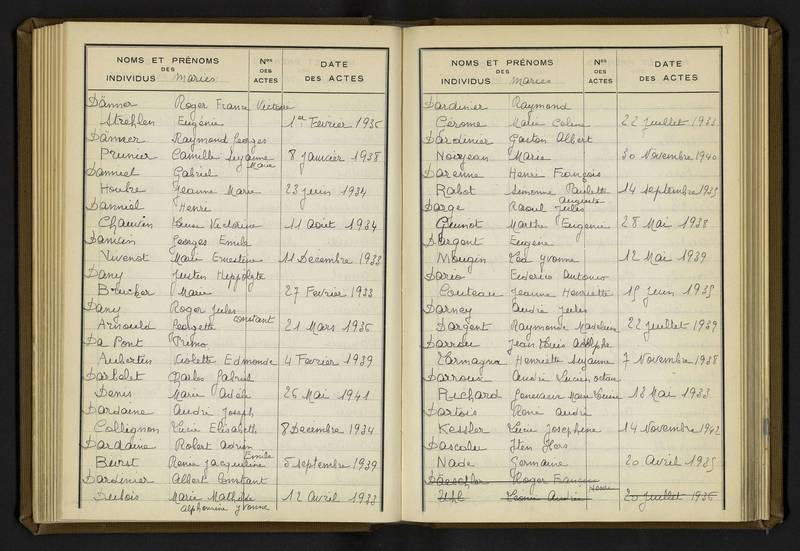 NOMS ET PRÉNOMS
DES
INDIVIDUS Mariés
Nos
DES
ACTES
DATE
DES ACTES
Dänner Roger Franz Victoire
Strehlen Eugénie 1er Fevrier 1936
Dänner Raymond Georges
Prunier Camille Suzanne Marie 8 Janvier 1938
Danniel Gabriel
Houbre Jeanne Marie 23 juin 1934
Danniel Henri
Chauvin Victorine 11 Août 1934
Georges Emile
Vuvenot Marie Ernestine 11 Décembre 1933
Dany Justin Hippolyte
Brucker Marie 27 Fevrier 1933
Dany Roger Jules constant
Arnould Georgette 21 Mars 1936
Da Pont Primo
Aubertin Violette Edmonde 4 Fevrier 1939
Darbelet Charles Gabriel
Denis Marie Adèle 26 Mai 1941
Dardaine André Joseph
Collignon Lucie Elisabeth 8 Decembre 1934
Dardaine Robert Adrien
Renée Jacqueline Emilie 5 septembre 1939
Dardinier Albert Constant
Dubois Marie Mathilde 12 Avril 1933
alphonsine yvonne
NOMS ET PRÉNOMS
DES
INDIVIDUS Mariés
Nos
DES
ACTES
DATE
DES ACTES
Dardinier Raymond
Cérome Marie Celine 22 juillet 1933
Dardinier Gaston Albert
Noirjean Marie 30 Novembre 1940
Darenne Henri François
Rabot Simonne Paulette 14 septembre 1935
Darge Raoul Jules Auguste
Guinot Marthe Eugenie 28 Mai 1938
Dargent Eugène
Mougin yvonne 12 Mai 1939
Dario Federico Antonio
Couteau Jeanne Henriette 15 juin 1935
Darney André Jules
Dargent Raymonde Madeleine 22 juillet 1939
Darrou Jean Louis Adolphe
Henriette Suzanne 7 Novembre 1938
Darroux André Lucien octave
Richard Geneviève Marie Lucie 18 Mai 1933
Dartois René André
Kessler Lucie Josephine 14 Novembre 1942
Dascola
Nade Germaine 20 Avril 1935
Roger François
Uhl Léonie Andrée 20 juillet 1936